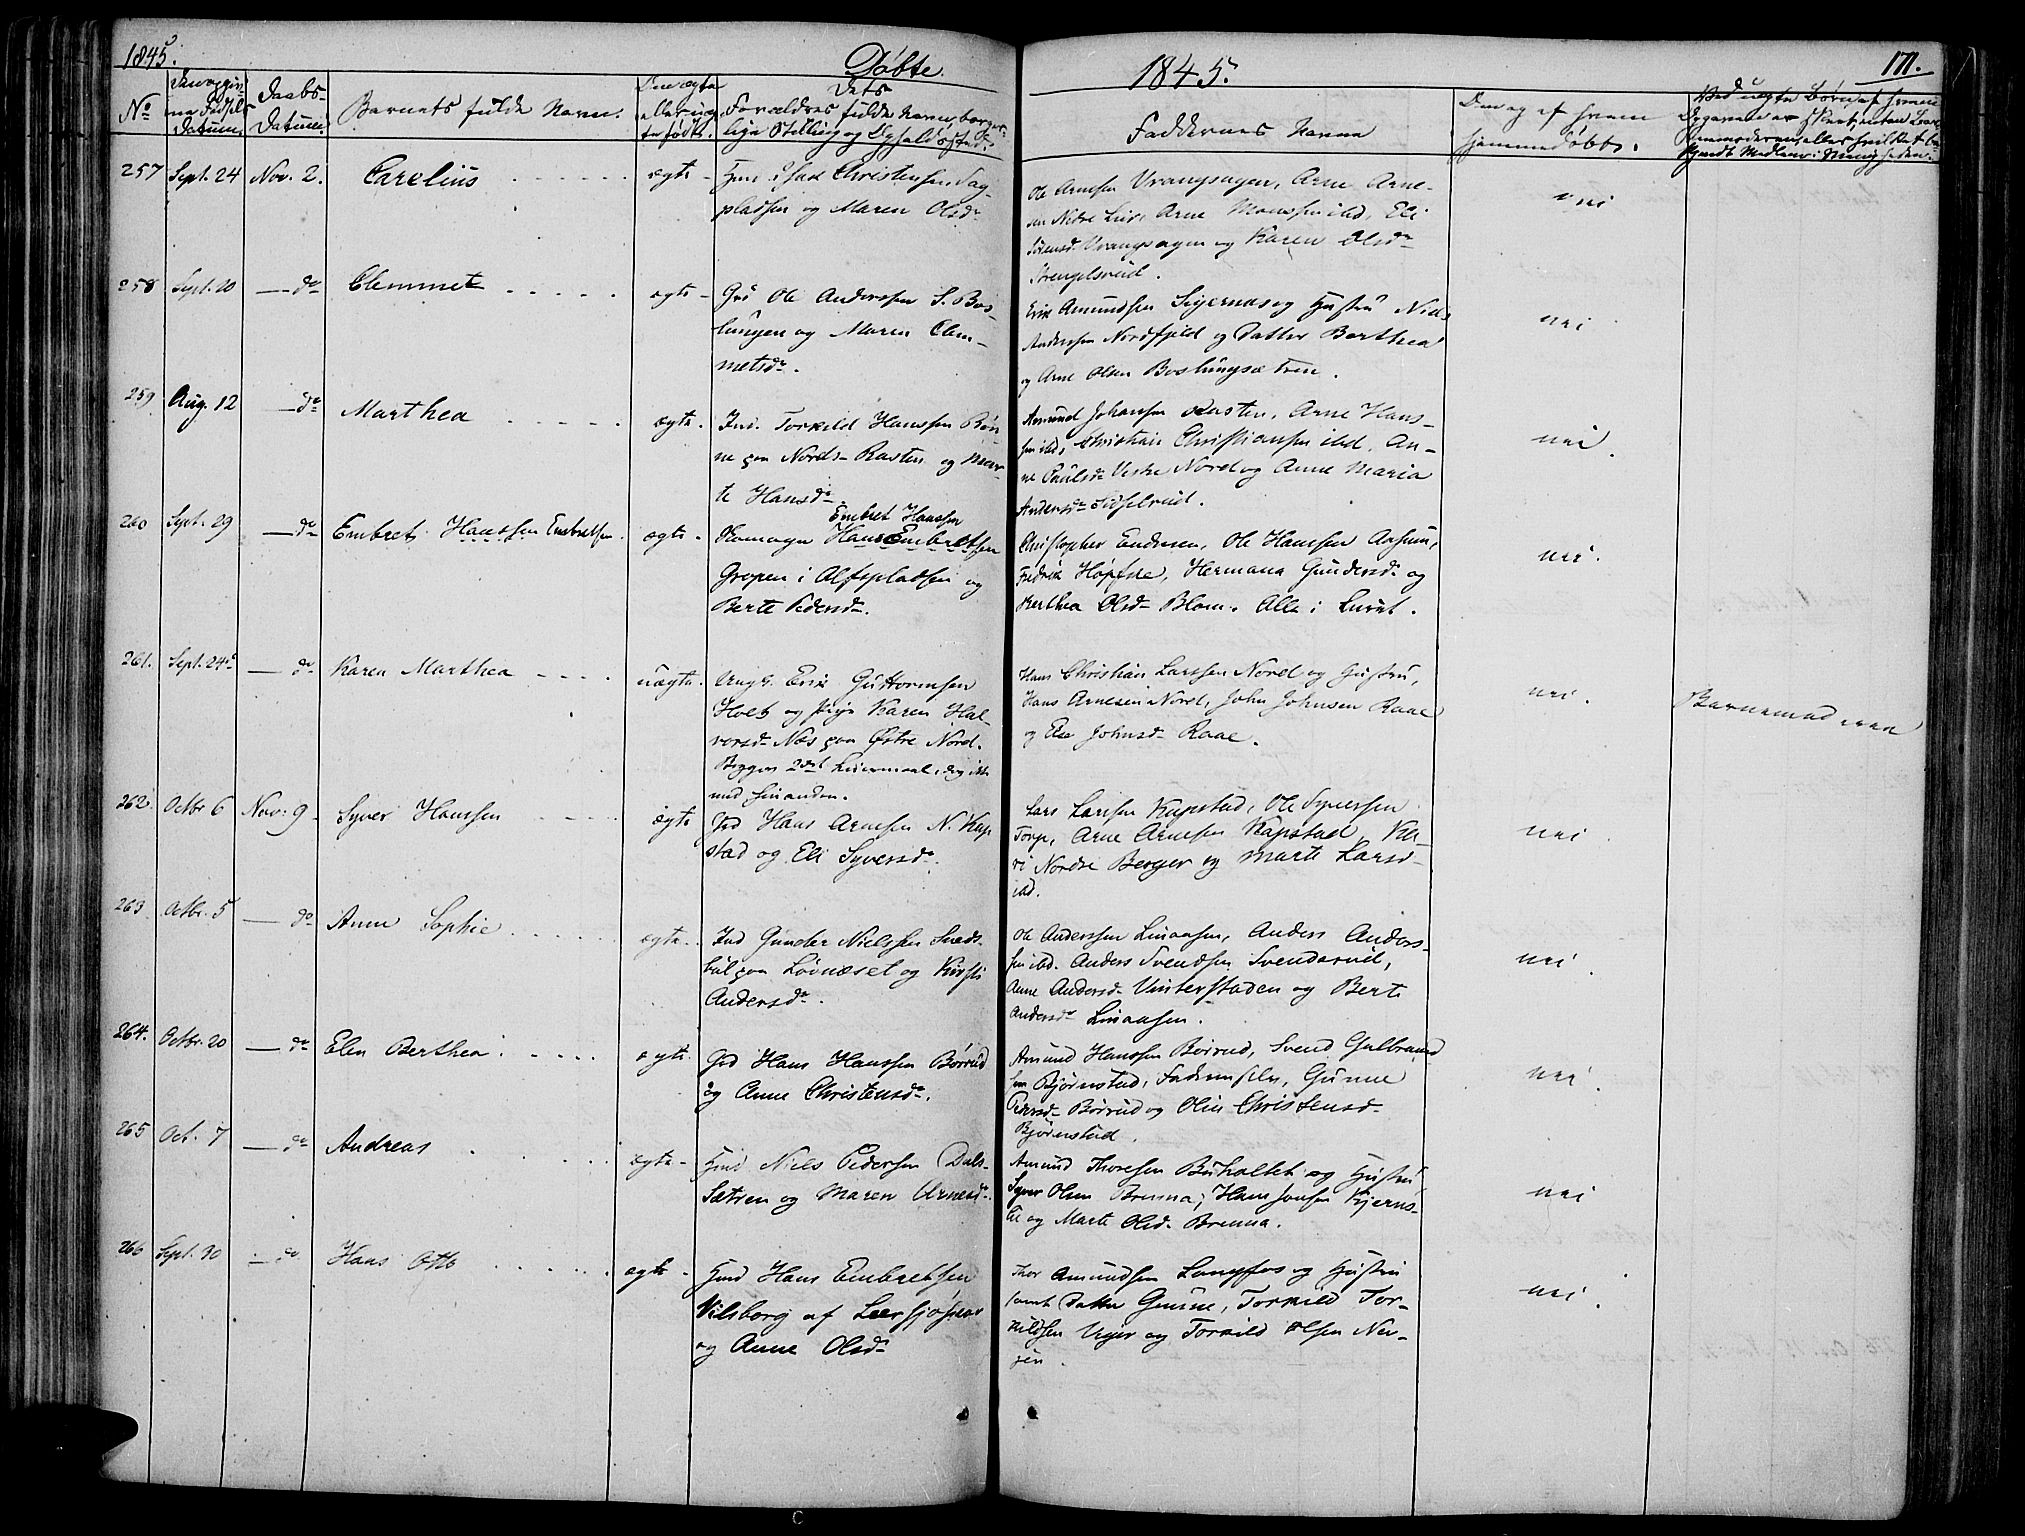 1845.
Døbte.
1845.
171.
No
Datum.
Daabs-
Datum.
Barnets fulde Navn.
Forældres fulde Navn, borger-
lige Stilling og Opholdssted.
Faddernes Navne
hjemmedøbt.
257 Sept. 24 Nov. 2. Carelius ægte -
Christensen
pladsen og Maren Olsdr
Ole Arnesen Vrangsagen, Arne Arne-
Arne Monssen ibd, Eli
Vrangsagen og Karen Olsdr
Strengelsrud.
nei
258 Sept. 20 — do Clemmet ægte -
Grd Ole Anderssen S. Bos-
lungen og Maren Clem-
metsdr.
Erik Amundsen Seiernæs og Hustru Niels
Anderssen Nordfjeld og Datter Berthea
og Arne Olsen Boslungsætren.
nei
259 Aug. 12 — do Marthea ægte.
Ind. Torkild Hanssen Bøn-
ne paa Nords- Rasten og Mar-
te Hansdr
Amund Johansen Rasten, Arne Hans-
sen ibd, Christian Christiansen ibd, An-
ne Paulsdr Vestre Nord og Anne Maria
Andersdr Sidselrud.
nei.
260 Sept. 29 — do Embret Hanssen Embretsen. ægte -
Embret Hanssen
Hans Embretsen
Gropen i Alfspladsen og
Berte Pedersdr.
Christopher Endresen, Ole Hanssen Aasum,
Fredrik Høpfne, Hermana Gundersdr og
Berthea Olsdr Blom. Alle i Lunet.
nei.
261. Sept. 24 — do Karen Marthea uægte.
Ungk. Erik Guttormsen
Holt og pige Karen Hal-
vorsdr Næs paa Østre Nord.
Begges 2det Leiermaal, dog ikke
med hinanden.
Hans Christian Larssen Nord og Hustru,
Hans Arnesen Nord, John Johnsen Raae
og Else Johnsdr Raae.
nei.
Barnemoderen
262. Octbr 6 Nov. 9 Syver Hanssen ægte
Grd Hans Arnesen N. Kap-
stad og Eli Syversdr.
Lars Larssen Kapstad, Ole Syversen
Torp, Arne Arnesen Kapstad, Ka-
ri Nordre Berger og Marte Larsdr
ibd.
nei.
263 Octbr. 5 — do Anne Sophie ægte.
Ind Gunder Nielssen Sveds-
bøl paa Løvnæset og Kirsti
Andersdr.
Ole Anderssen Linaasen, Anders Anders-
sen ibd. Anders Svendsen Svendsrud,
Anne Andersdr Vinterstaden og Berte
Andersdr Linaasen.
nei.
264. Octbr. 20 — do Elen Berthea. ægte.
Grd Hans Hanssen Børrud
og Anne Christensdr.
Amund Hanssen Børrud, Svend Gulbrand
sen Bjørnstad, Faderen selv, Gunne
Pedersdr Børrud og Olia Christensdr
Bjørnstad.
nei.
265 Oct. 7 — do Andreas ægte -
Hmd Niels Pedersen Dals-
Sætren og Maren Arnesdr.
Amund Thoresen Buholtet og Hustru
Syver Olsen Brenna, Hans Jonsen Kjerns-
lie og Marte Olsdr Brenna.
nei
266 Sept. 30 — do Hans Otto ægte -
Hmd Hans Embretsen
Vilsborg af
og Anne Olsdr
Thor Amundsen Langfos og Hustru
samt Datter Gunne, Torkild Tor-
kildsen Veger og Torkild Olsen Ner-
gen.
nei.